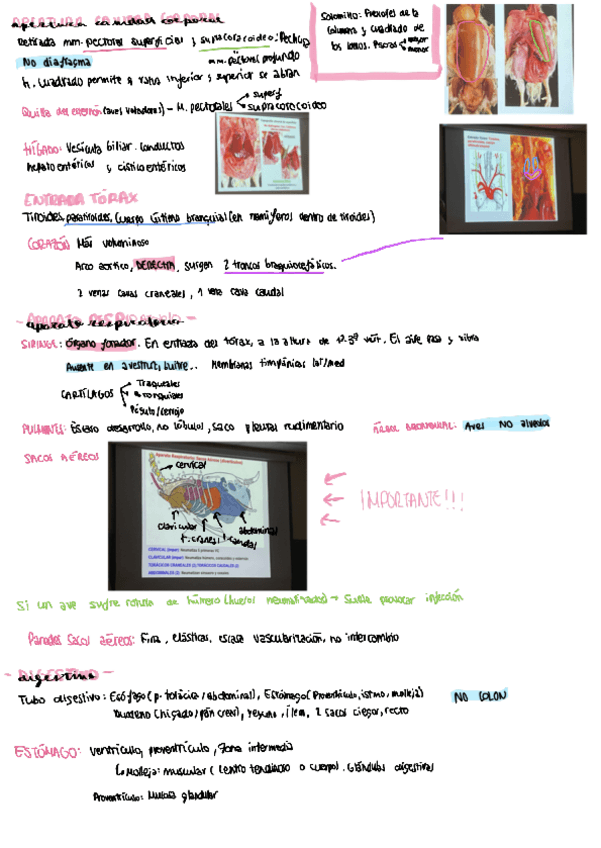 apertura cavidad corporal
Retirada mm. pectorales superficiales y supracoracoideo: Pechuga
No diafragma
mm. pectoral profundo
h. cuadrado permite a raha inferior y superior se abran
Quilla del esternón (aves voladoras) - M. pectorales superf
supracoracoideo
Solomillo: Flexores de la
columna y cuadrado de
los lomos. Psoas mayor
menor
HÍGADO: Vesícula biliar. Conductos
hepato entéricos y cístico entéricos
ENTRADA TÓRAX
Tiroides, paratiroides, cuerpo último branquial (en mamíferos dentro de tiroides)
CORAZÓN Más voluminoso
Arco aortico, DERECHA, surgen 2 troncos braquiocefálicos.
2 venas cavas craneales, 1 vena cava caudal
- aparato respiratorio -
SIRINGE: Órgano fonador. En entrada del tórax, a la altura de 2-3ª vért. El aire pasa y vibra
Ausente en avestruz, buitre.. Membranas timpánicas lat/med
CARTÍLAGOS Traqueales
Bronquiales
Pésulo/cerrojo
PULMONES: Escaso desarrollo, no lóbulos, saco pleural rudimentario
ÁRBOL BRONQUIAL: Aves NO alveolos
SACOS AÉREOS
Aparato Respiratorio: Sacos Aéreos (divertículos)
cervical
clavicular
t. craneal
t. caudal
abdominal
CERVICAL (impar):
CLAVICULAR (impar):
TORÁCICOS CRANEALES (2) TORÁCICOS CAUDALES (2)
ABDOMINALES (2):
IMPORTANTE!!!
Si un ave sufre rotura de húmero (huesos neumatizados) → Suele provocar infección
Paredes sacos aéreos: Fina, elásticas, escasa vascularización, no intercambio
- digestivo -
Tubo digestivo: Esófago (p. torácica / abdominal), Estómago (Proventrículo, istmo, molleja)
NO COLON
Duodeno (hígado/páncreas), yeyuno, íleon, 2 sacos ciegos, recto
ESTÓMAGO: ventrículo, proventrículo, zona intermedia
Molleja: muscular (centro tendinoso o cuerpo). Glándulas digestivas
Proventrículo: Mucosa glandular